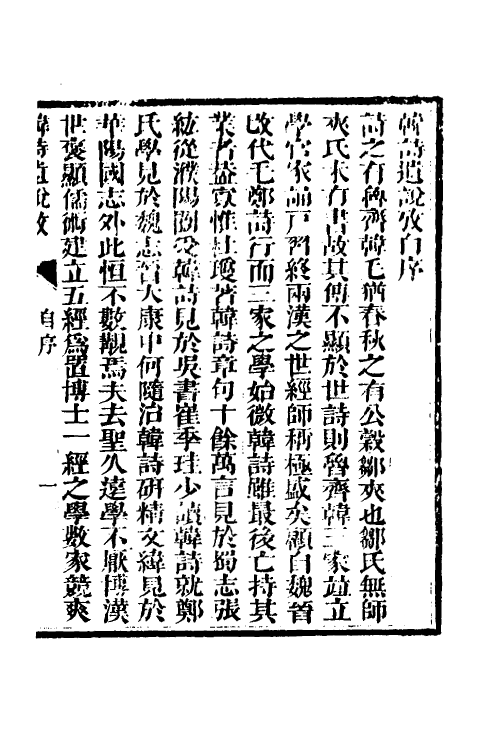 韓詩遺說攷自序
詩之有魯齊韓毛猶春秋之有公穀鄒夾也鄒氏無師
夾氏未有書故其傳不顯於世詩則魯齊韓三家竝立
學官家誦戶習終兩漢之世經師稱極盛矣顧自魏晉
改代毛鄭詩行而三家之學始微韓詩雖最後亡持其
業者蓋寡惟杜瓊著韓詩章句十餘萬言見於蜀志張
紘從濮陽闓受韓詩見於吳書崔季珪少讀韓詩就鄭
氏學見於魏志晉大康中何隨治韓詩研精文緯見於
華陽國志外此恒不數覯焉夫去聖久遠學不厭博漢
世褒顯儒術建立五經為置博士一經之學數家競爽
韓詩遺說攷
自序
一